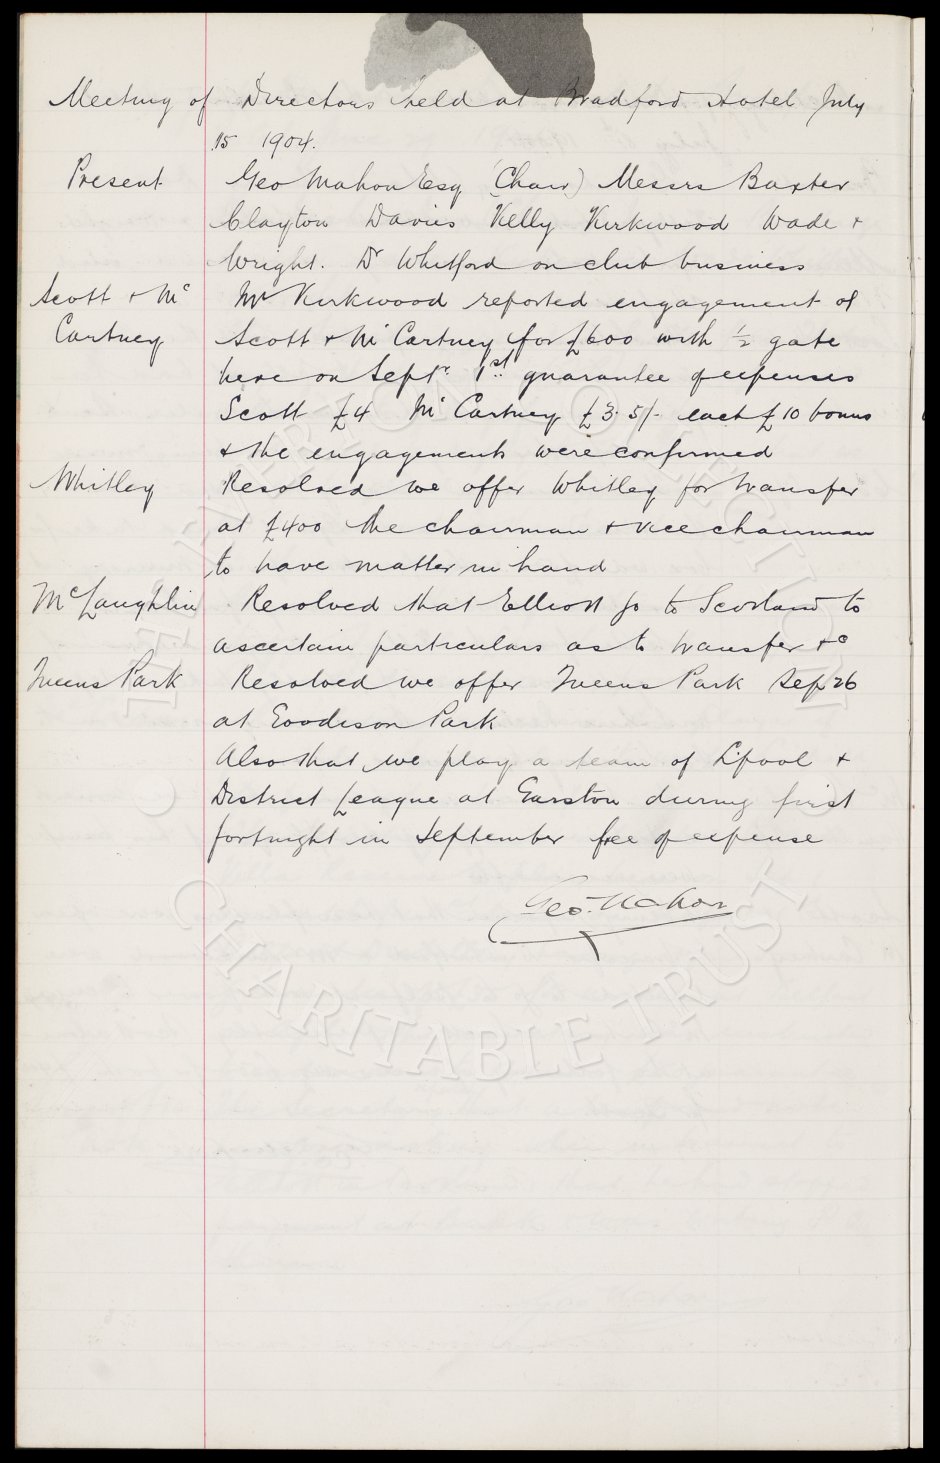 Meeting of Directors held at Bradford Hotel July
15 1904.
Present Geo Mahon Esq (Chair) Messrs Baxter
Clayton Davies Kelly Kirkwood Wade +
Wright. Dr Whitford on club business
Scott + Mc Mr Kirkwood reported engagement of
Cartney Scott + Mc Cartney for £600 with ½ gate
here on Septr 1st guarantee of expenses
Scott £4 Mc Cartney £3.5/- each £10 bonus
+ the engagements were confirmed
Whitley Resolved we offer Whitley for transfer
at £400 the chairman + vice chairman
to have matter in hand
McLaughlin Resolved that Elliott go to Scotland to
ascertain particulars as to transfer +c
Queens Park Resolved we offer Queens Park Sep 26
at Goodison Park
Also that we play a team of Lpool +
District League at Garston during first
fortnight in September free of expense
Geo. Mahon
EVERTON COLLECTION
CHARITABLE TRUST